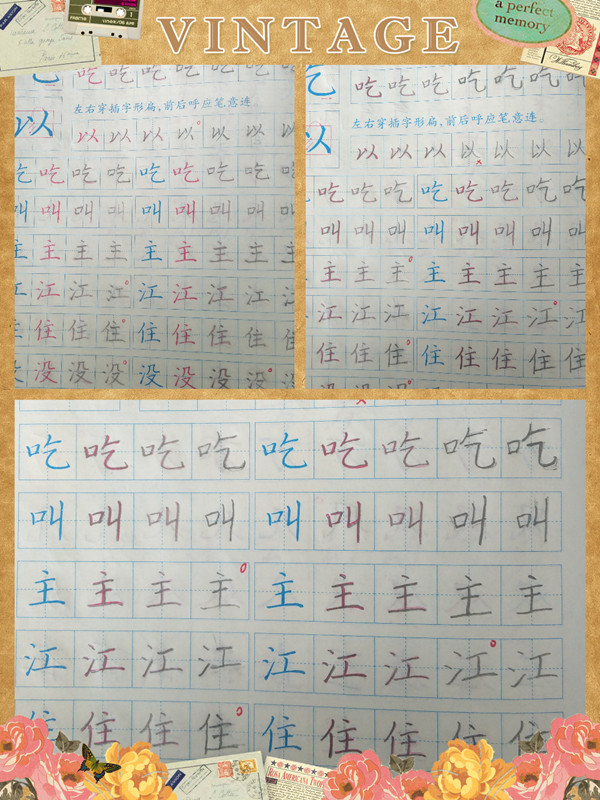 VINTAGE
a perfect
memory
吃 吃 吃 吃 吃 吃 吃
左右穿插字形扁,前后呼应笔意连
以 以 以 以 以 以 以
吃 吃 吃 吃 吃 吃 吃 吃
叫 叫 叫 叫 叫 叫 叫 叫
主 主 主 主 主 主 主 主
江 江 江 江 江 江 江 江
住 住 住 住 住 住 住 住
没 没 没 没 没 没 没 没
吃 吃 吃 吃 吃 吃 吃
左右穿插字形扁,前后呼应笔意连。
以 以 以 以 以 以 以 以
吃 吃 吃 吃 吃 吃 吃
叫 叫 叫 叫 叫 叫 叫
主 主 主 主 主 主 主
江 江 江 江 江 江 江
住 住 住 住 住 住 住
吃 吃 吃 吃 吃 吃 吃 吃 吃
叫 叫 叫 叫 叫 叫 叫 叫 叫
主 主 主 主 主 主 主 主 主
江 江 江 江 江 江 江 江 江
住 住 住 住 住 住 住 住 住
ROSA AMERICANA TROPI